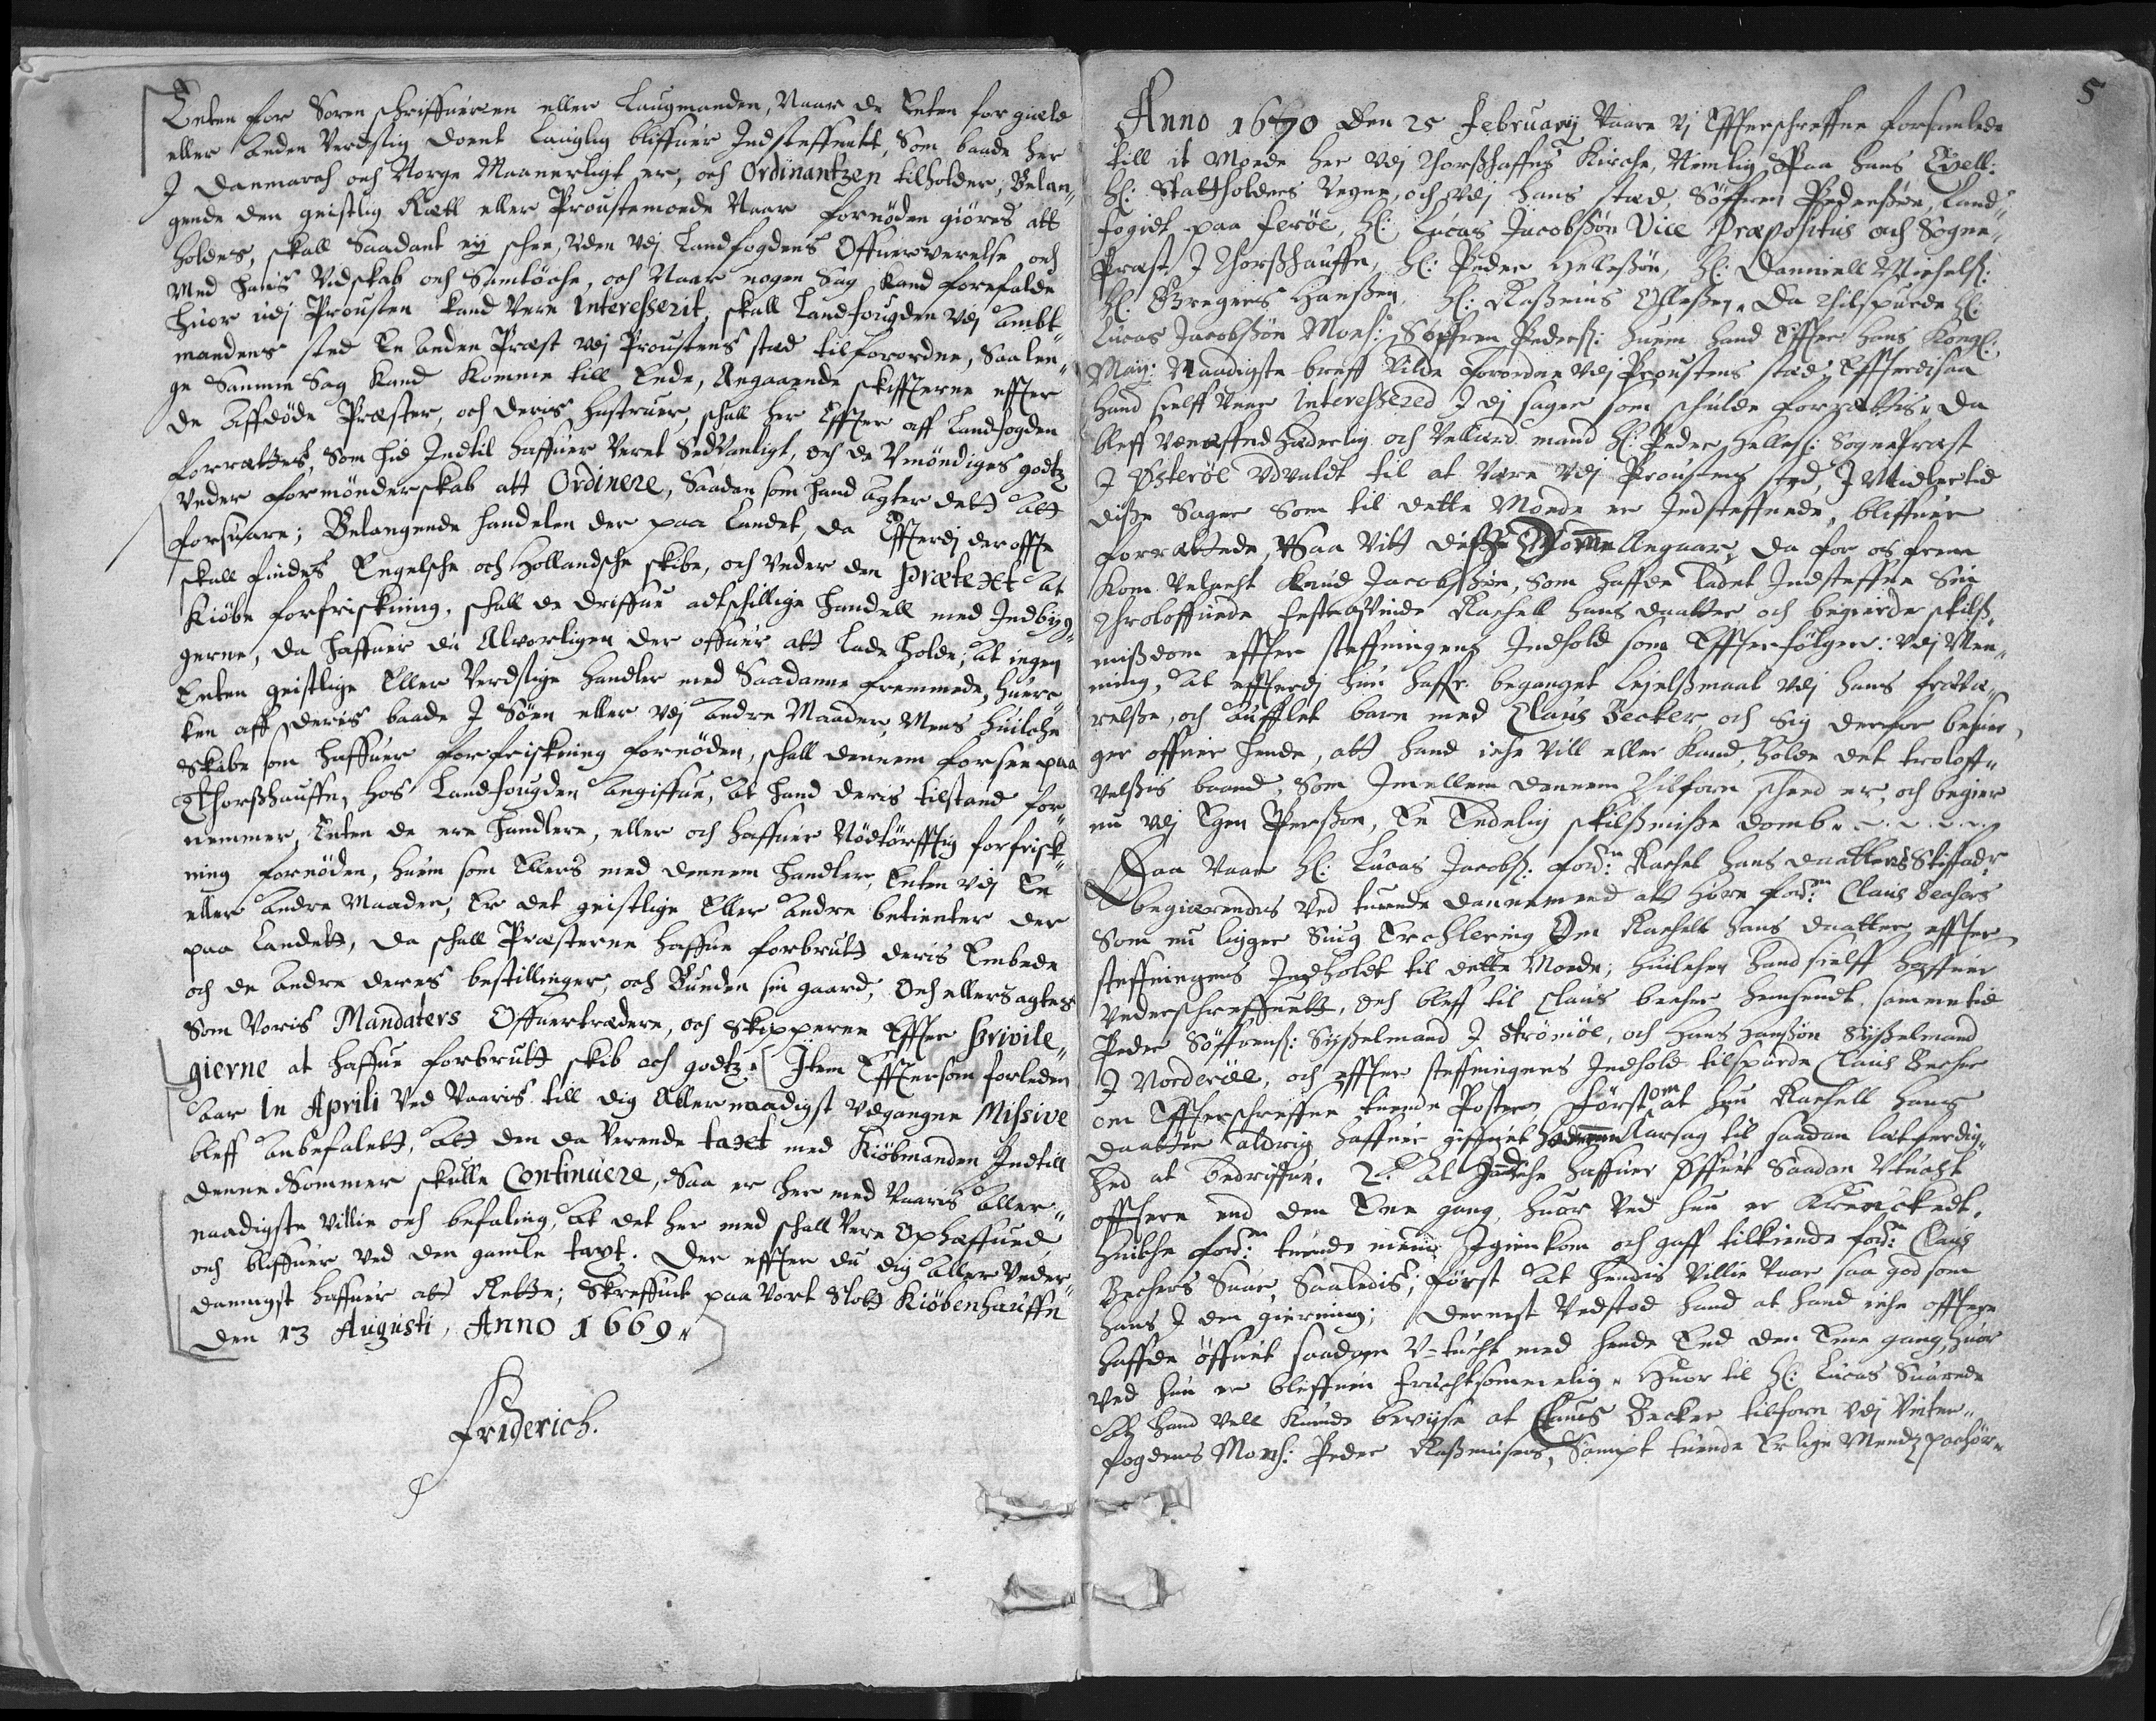 Enten for Soren schriffueren eller Laugmanden, Naar de Enten for gield
eller Anden Verdslig dont lauglig bliffuer Indsteffnett, Som baade her
J Danmarch och Norge Maanerligt er, och Ordinantzen tilholder, Belan„
gende den geistlig Rætt eller Proustemoede Naar fornøden giøres att
holdes, skall Saadant eij schee, Uden Vdj Landfogdens Offuerverelse och
Med hans Vidskab och Samtöche, och Naar nogen Sag kand forefalde
huor udj Prousten kand Vere Interesserit, skall Landfougden Vdj Ambt
mandens sted En Anden Præst Vdj Proustens stæd tilforordne, Saalen„
ge Samme Sag kand komme till Ende, Angaaende skiffterne effter
de Affdöde Præster, och deris hustruer, schall her Effter aff Landfogden
forrættes, Som hid Indtil haffuer Veret Sedvanligt, och de Umöndiges godtz
Under formönderskab att Ordinere, Saadan som hand agter dett Att
forsuare; Belangende handelen der paa Landet, da Effterdj der offte
skall findes Engelsche och Hollandsche skibe, och Under den Prætext At
Kiöbe forfriskning, schall de driffue adtschillige handell med Indbijg„
gerne, da haffuer du Alvorligen der offuer att lade holde, At ingen
Enten geistlige Eller Verdslige handler med Saadanne fremmede, huer„
ken aff deris baade J Söen eller Vdj Andre Maader, Mens huilche
Skibe som haffuer forfriskning fornöden, schall dennem forsee paa
Thorßhauffn, hos Landfougden Angiffue, At hand deris tilstand for„
nemmer, Enten de ere handlere, eller och haffuer Nödtörfftig forfrisk„
ning fornöden, huem som Ellers med dennem handler, Enten Vdj En
eller Andre Maader, Er det geistlige Eller Andre betienter der
paa Landett, da schall Præsterne haffue forbrutt deris Embede
och de Andre deres bestillinger, och Bunden sin gaard, Och ellers agtes
Som Voris Mandaters Offuertrædere, och Skipperne Effter Privile„
gierne at haffue forbrutt skib och godtz. Item Efftersom forleden
Aar In Aprili Ved Vaaris till dig Allernaadigst Udgangne Missive
bleff Anbefalett, Att den da Verende taxt med Kiöbmanden Indtill
denne Sommer skulle Continuere, Saa er her med Vaaris Aller„
naadigste Villie och befaling, At det her med schall Vere Ophæffued
och bliffuer Ved den gamle taxt. Der effter du dig Aller Under„
danigst haffuer att Rette; Skreffuit paa Vort Slott Kiöbenhauffn
Den 13 Augusti, Anno 1669.
Friderich.
5
Anno 1670 Den 25 Februarij Vaare Vj Effterschreffne forsamlede
till it Moede her Vdj Thorßhaffns Kirche, Nemlig Paa hans Excell:
Hl: Stattholders Vegne, och Vdj hans stæd, Söffren Pederßön, Land„
fogidt paa Feröe, Hl: Lucas Jacobßön Vice Præpositus och Sogne„
Præst J Thorßhauffn, Hl: Peder Helleßön, Hl: Danniell Michelß:
Hl: Gregers Hanßen, Hl: Raßmus Olleßen. Da tilspurde Hl:
Lucas Jacobßön Mons: Söffren Pederß: huem hand Effter Hans Kongl:
Maij: Naadigste breff Vilde forordne Vdj Proustens stæd, Effterdj saa
hand sielff Vaar Interessered J dj sager som schulde forrættis. Da
bleff Veneffnd Hæderlig och Vellærd mand Hl: Peder Helleß: SognePræst
J Österöe Udvaldt til at Være Vdj Proustens sted, J Midlertid
disse Sager Som til dette Moede er Indsteffnede, bliffuer
forrættede, Saa Vitt disse Angaar, da for os frem
kom Velacht Knud Jacobßön, Som haffde ladet Indsteffne Sin
Throloffuede Festequinde Rachell Hans daatter och begierde skilß„
mißdom effter steffningens Indhold som Effterfölger: Vdj Men„
ning, At effterdj hun haffr. begaaet Lejelßmaal Vdj hans fravæ„
relße, och aufflet barn med Claus Becker och Sig derfor besuer„
ger offuer hende, att hand iche Vill eller kand, holde det troloff„
velßis baand, Som Imellem dennem tilforn scheed er, och begier
nu Vdj Egen Perßon, En Endelig skilßmiße domb.
Daa Vaar Hl: Lucas Jacobß: fordn: Rachel Hans daatters Stiffadr
begierendes Ved tuende dannemend att höre fordn: Claus Bechers
Som nu ligger Siug Erchlering Om Rachell Hans daatter effter
steffningens Indholdt til dette Moede; huilchen hand sielff haffuer
Underschreffuett, och bleff til Claus becher hensendt samme tid
Peder Söffrenß: Sÿßelmand J Strömöe, och Hans Hanßön Sÿßelmand
J Norderöe, och effter steffningens Indhold tilspurde Claus Becher
om Effterschreffne tuende Poster, Först om at hun Rachell Hans
daatter aldrig haffuer giffuet Aarsag til saadan letferdig„
hed at bedriffue. 2. At hand iche haffuer Öffuet Saadan Utucht
offtere end den Ene gang, huor Ved hun er Krenckedt.
huilche fordn: tuende mend Igienkom och gaff tilkiende fordn: Claus
Bechers Suar, Saaledis; Först At hendis Villie Vaar saa god som
hans J den gierning; Dernest Vedstod hand at hand iche offtere
haffde öffuet saadan U-tucht med hende End den Ene gang, huor
Ved hun er bleffuen fruchtsommelig. Huor til Hl: Lucas Suarede
At hand Vell kunde bevijse at Claus Becker tilforn Vdj Unter„
fogdens Mons: Peder Raßmusens, Sampt tuende Erlige Mends paahör„